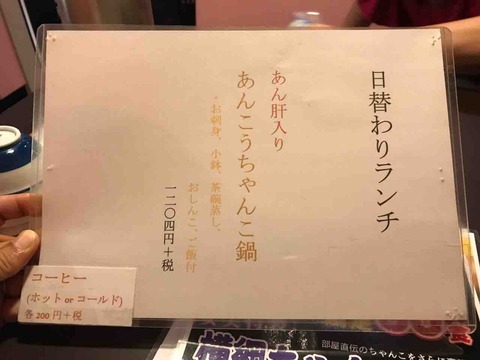 日替わりランチ
あん肝入り
あんこうちゃんこ鍋
・お刺身、小鉢、茶碗蒸し、
おしんこ、ご飯付
一二〇四円＋税
コーヒー
(ホット or コールド)
各 200 円＋税
部屋直伝のちゃんこをさらに